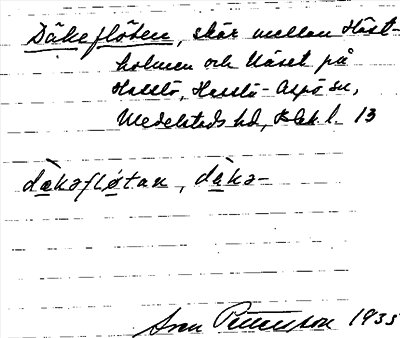 Däkeflöten, skär mellan Häst-
holmen och Näset på
Hasslö, Hasslö-Aspö sn,
Medelstads hd, Blek. l. 13
dàkəfløtan, dàkə-
Sven Petersson 1935